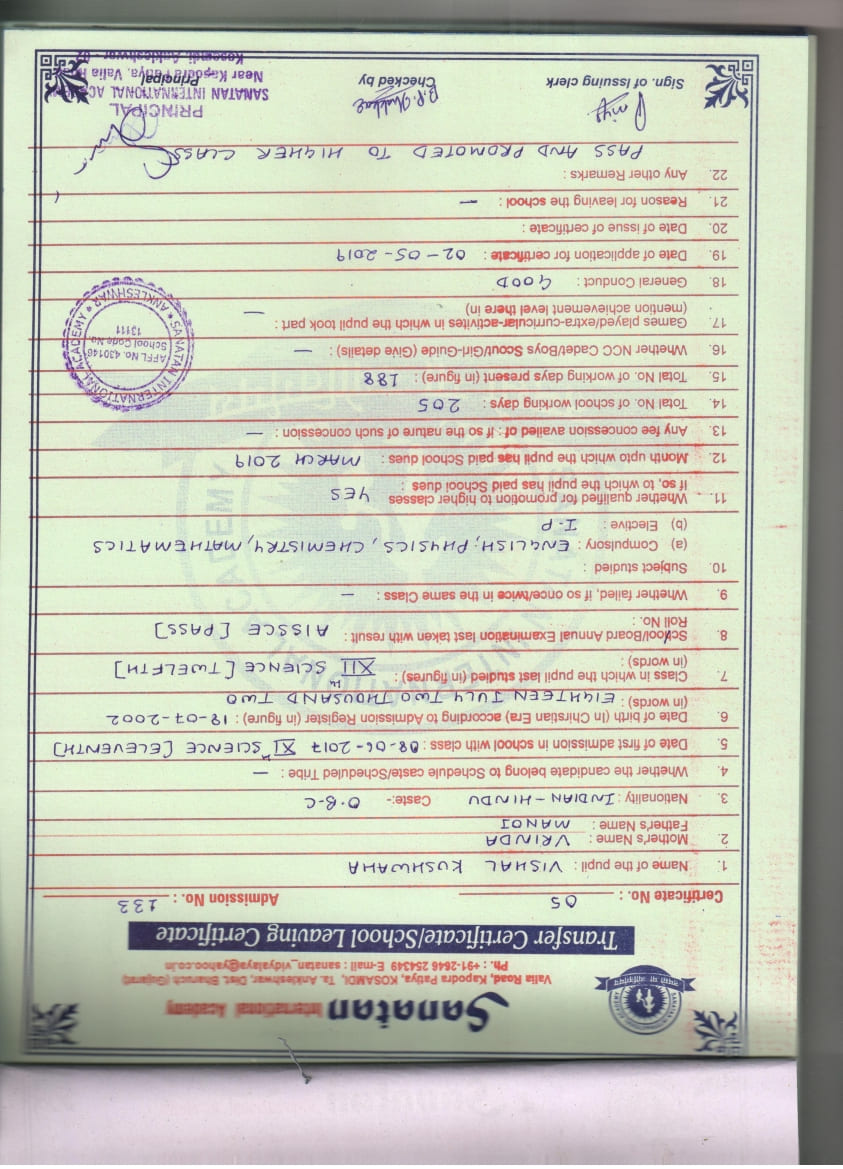 Sanatan International Academy
Valia Road, Kapodra Patiya, KOSAMDI, Ta. Ankleshwar, Dist. Bharuch (Gujarat)
Ph. : +91-2646 254349 E-mail : sanatan_vidyalaya@yahoo.co.in
Transfer Certificate/School Leaving Certificate
Certificate No. : 05 Admission No. : 133
1. Name of the pupil : VISHAL KUSHWAHA
2. Mother's Name : VRINDA
Father's Name : MANOJ
3. Nationality : INDIAN-HINDU Caste:- O.B.C
4. Whether the candidate belong to Schedule caste/Scheduled Tribe : —
5. Date of first admission in school with class : 08-06-2017 XI th SCIENCE [ELEVENTH]
6. Date of birth (In Chirstian Era) according to Admission Register (in figure) : 18-07-2002
(in words) : EIGHTEEN JULY TWO THOUSAND TWO
7. Class in which the pupil last studied (in figures) : XII th SCIENCE [TWELFTH]
(in words) :
8. School/Board Annual Examination last taken with result : AISSCE [PASS]
Roll No. :
9. Whether failed, if so once/twice in the same Class : —
10. Subject studied :
(a) Compulsory : ENGLISH, PHYSICS, CHEMISTRY, MATHEMATICS
(b) Elective : I.P
11. Whether qualified for promotion to higher classes YES
if so, to which the pupil has paid School dues :
12. Month upto which the pupil has paid School dues : MARCH 2019
13. Any fee concession availed of : if so the nature of such concession : —
14. Total No. of school working days : 205
15. Total No. of working days present (in figure) : 188
16. Whether NCC Cadet/Boys Scout/Girl-Guide (Give details) : —
17. Games played/extra-curricular-activites in which the pupil took part : —
(mention achievement level there in)
18. General Conduct : GOOD
19. Date of application for certificate : 02-05-2019
20. Date of issue of certificate :
21. Reason for leaving the school : —
22. Any other Remarks :
PASS AND PROMOTED TO HIGHER CLASS
SANATAN INTERNATIONAL ACADEMY * ANKLESHWAR *
AFFL No. 430146
School Code No.
13111
Sign. of Issuing clerk Checked by Principal
PRINCIPAL
SANATAN INTERNATIONAL
Near Kapodra Patiya, Valia
Kosamdi, Ankleshwar